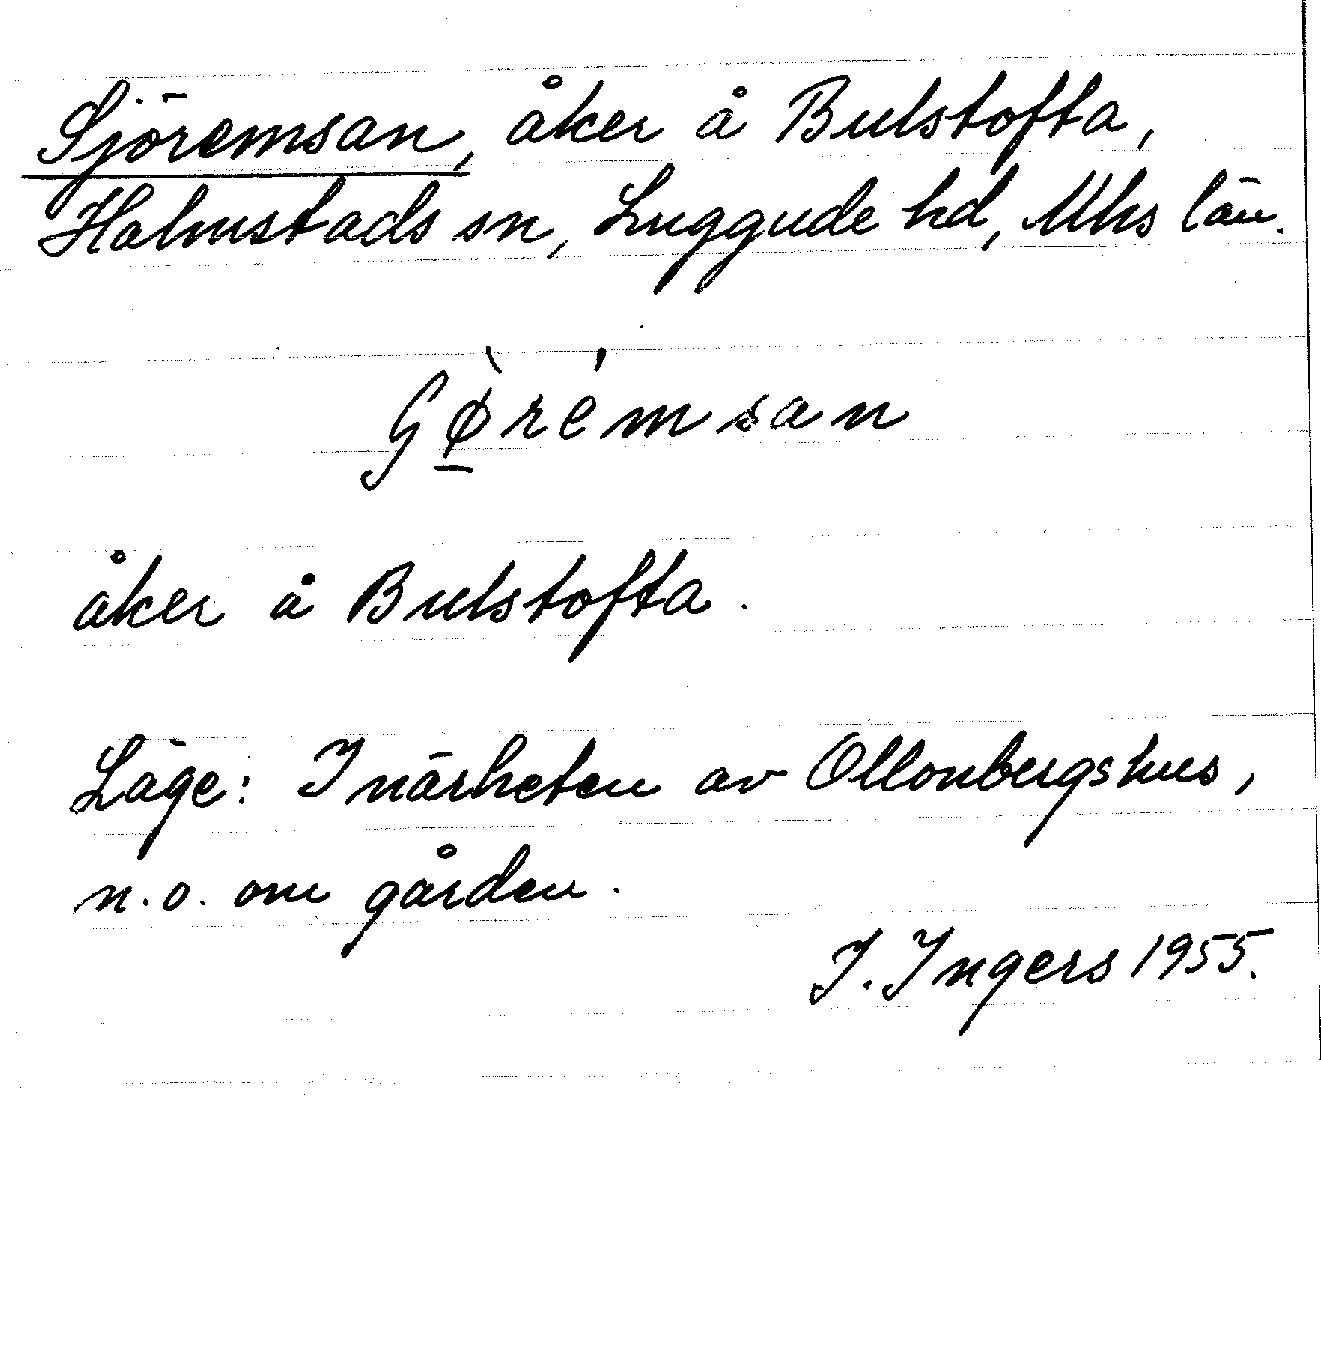 Sjöremsan, åker å Bulstofta,
Halmstads sn, Luggude hd, Mhs län.
Gø̱̀rémsan
åker å Bulstofta.
Läge: I närheten av Ollonbergshus,
n.o. om gården.
I. Ingers 1955.